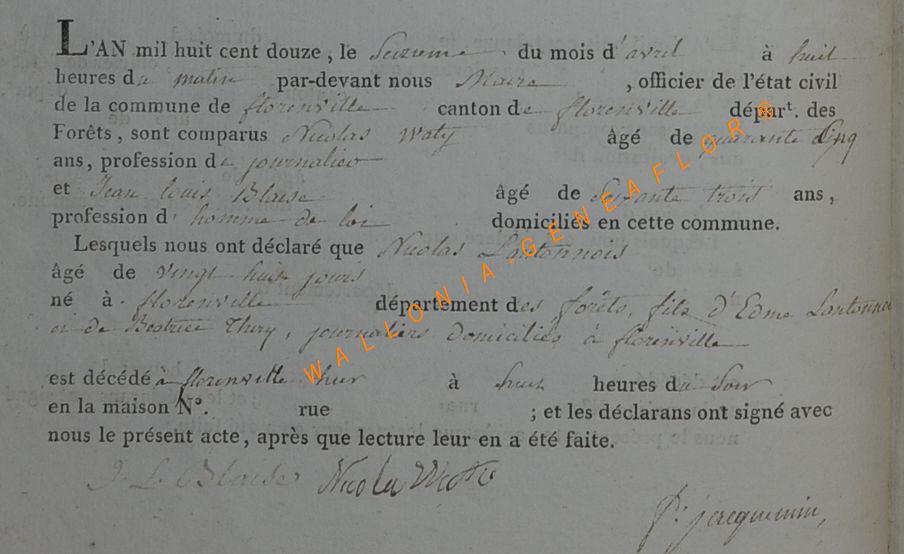 L'AN mil huit cent douze, le Seizieme du mois d'avril à huit
heures du matin par-devant nous Maire, officier de l'état civil
de la commune de florenville canton de florenville départ. des
Forêts, sont comparus Nicolas Waty âgé de quarante Cinq
ans, profession de journalier
et Jean Louis Blaise âgé de Soixante trois ans,
profession d'homme de loi domiciliés en cette commune.
Lesquels nous ont déclaré que Nicolas Lantonnois
âgé de vingt huit jours
né à florenville département des forêts, fils d'Edme Lantonnois
et de Beatrice Thiry, journaliers domiciliés à florenville
est décédé à florenville hier à huit heures du Soir
en la maison N°. rue ; et les déclarans ont signé avec
nous le présent acte, après que lecture leur en a été faite.
J L Blaise Nicola
jacquemin
WALLONIA-GENEAFLOR ®